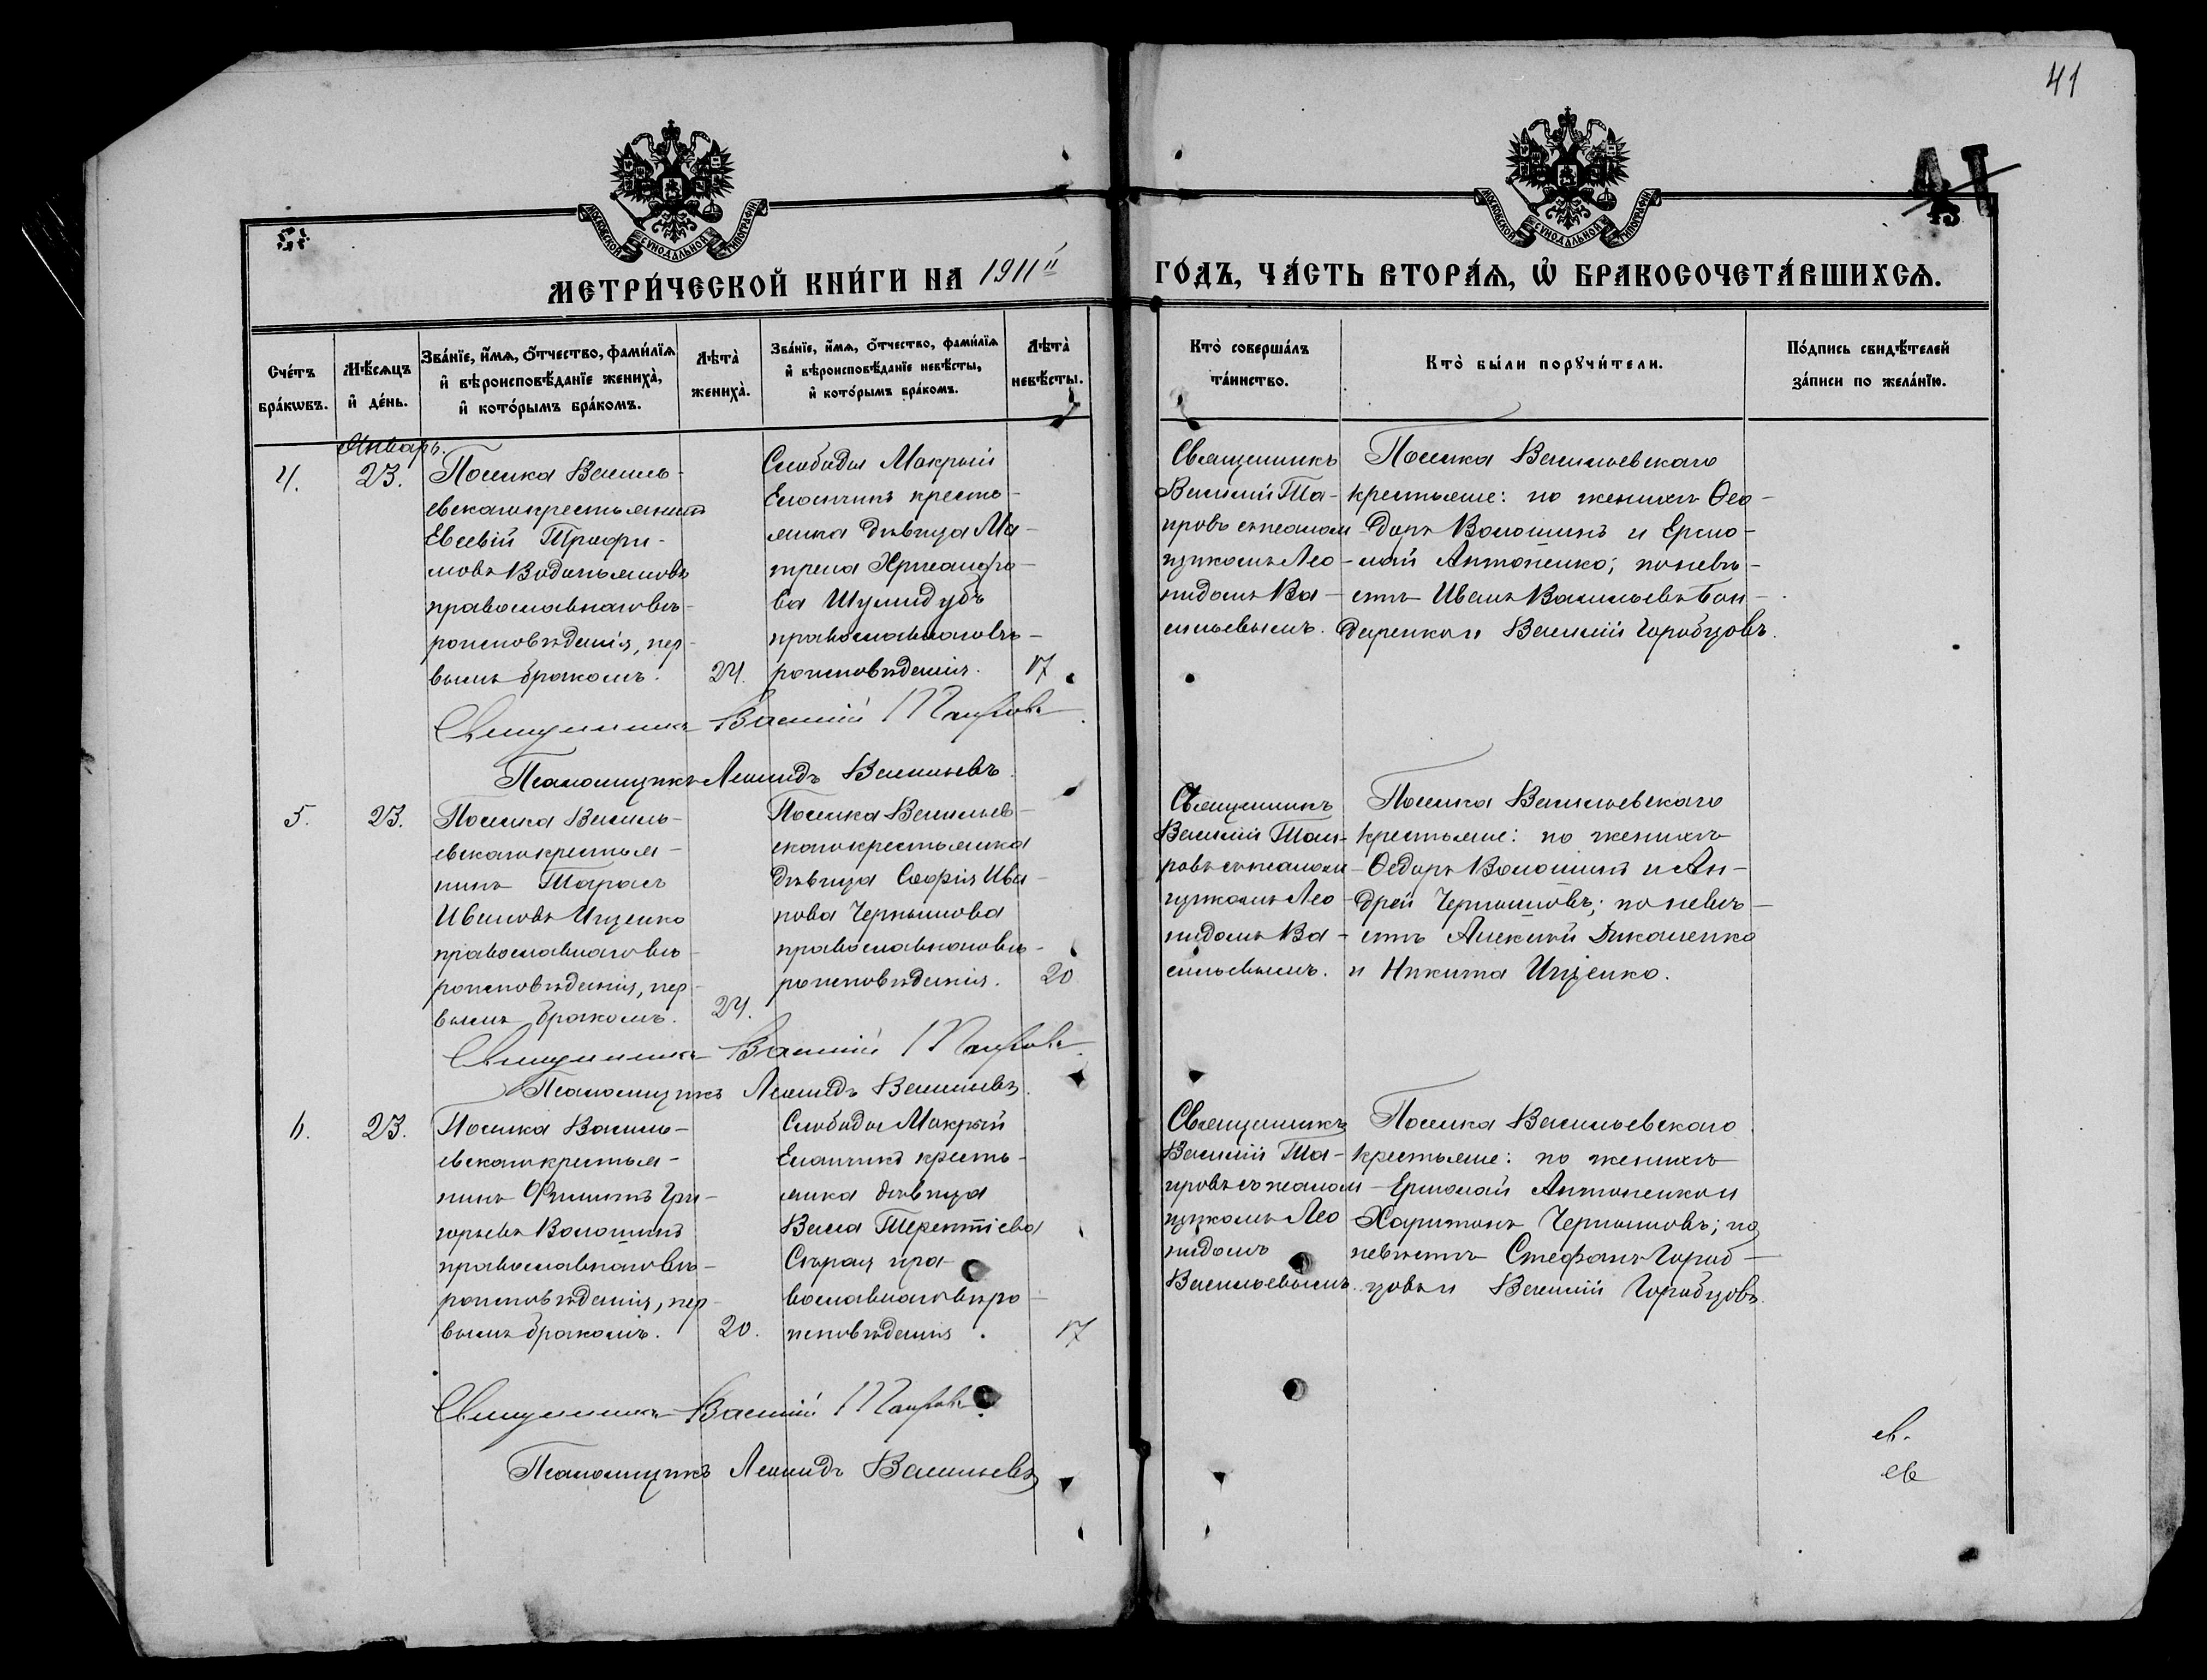 41
МОСКОВСКОЙ СУНОДАЛЬНОЙ ТИПОГРАФІИ
МОСКОВСКОЙ СУНОДАЛЬНОЙ ТИПОГРАФІИ
МЕТРИ́ЧЕСКОЙ КНИ́ГИ НА 1911й ГО́ДЪ, ЧА́СТЬ ВТОРА́Ѧ, Ѽ БРАКОСОЧЕТА́ВШИХСѦ.
Сче́тъ бра́кѡвъ.
Мѣ́сѧцъ и҆ де́нь.
Зва́нїе, и҆́мѧ, ѻ҆́тчество, фами́лїѧ и҆ вѣроисповѣ́данїе жениха̀, и҆ кото́рымъ бра́комъ.
Лѣта̀ жениха̀.
Зва́нїе, и҆́мѧ, ѻ҆́тчество, фами́лїѧ и҆ вѣроисповѣ́данїе невѣ́сты, и҆ кото́рымъ бра́комъ.
Лѣта̀ невѣ́сты.
Кто̀ соверша́лъ та́инство.
Кто̀ бы́ли порꙋчи́тели.
По́дпись свидѣ́телей за́писи по жела́нїю.
Январь.
4.
23.
Поселка Василь-
евскаго крестьянинъ
Евсевій Трофи-
мовъ Водопьяновъ
православнаго вѣ-
роисповѣданія, пер-
вымъ бракомъ.
24.
Слободы Мокрый
Еланчикъ кресть-
янка дѣвица Ма-
трена Хрисанфо-
ва Шумидубъ
православнаго вѣ-
роисповѣданія.
17
Священникъ
Василій Та-
ировъ съ псалом
щикомъ Лео-
нидомъ Ва-
сильевымъ.
Поселка Васильевскаго
крестьяне: по женихѣ Ѳео-
доръ Волошинъ и Ермо-
лай Антоненко; по невѣ-
стѣ Иванъ Васильевъ Бон-
даренко и Василій Горобцовъ.
Священникъ Василій Таировъ
Псаломщикъ Леонидъ Васильевъ.
5.
23.
Поселка Василь-
евскаго крестья-
нинъ Тарасъ
Ивановъ Ищенко
православнаго вѣ-
роисповѣданія, пер-
вымъ бракомъ.
24.
Поселка Васильев-
скаго крестьянка
дѣвица Софія Ива-
нова Чернышова
православнаго вѣ-
роисповѣданія.
20
Священникъ
Василій Таи-
ровъ съ псалом
щикомъ Лео-
нидомъ Ва-
сильевымъ.
Поселка Васильевскаго
крестьяне: по женихѣ
Ѳедоръ Волошинъ и Ан-
дрей Чернышовъ; по невѣ-
стѣ Алексѣй Дикаленко
и Никита Ищенко.
Священникъ Василій Таировъ
Псаломщикъ Леонидъ Васильевъ.
6.
23.
Поселка Василь-
евскаго крестья-
нинъ Филиппъ Гри-
горьевъ Волошинъ
православнаго вѣ-
роисповѣданія, пер-
вымъ бракомъ.
20.
Слободы Мокрый
Еланчикъ кресть-
янка дѣвица
Васса Терентіева
Сѣрая пра-
вославнаго вѣро-
исповѣданія.
17
Священникъ
Василій Та-
ировъ съ псалом
щикомъ Лео
нидомъ
Васильевымъ.
Поселка Васильевскаго
крестьяне: по женихѣ
Ермолай Антоненко и
Харитонъ Чернышовъ; по
невѣстѣ Стефанъ Гороб-
цовъ и Василій Горобцовъ.
Священникъ Василій Таировъ
Псаломщикъ Леонидъ Васильевъ